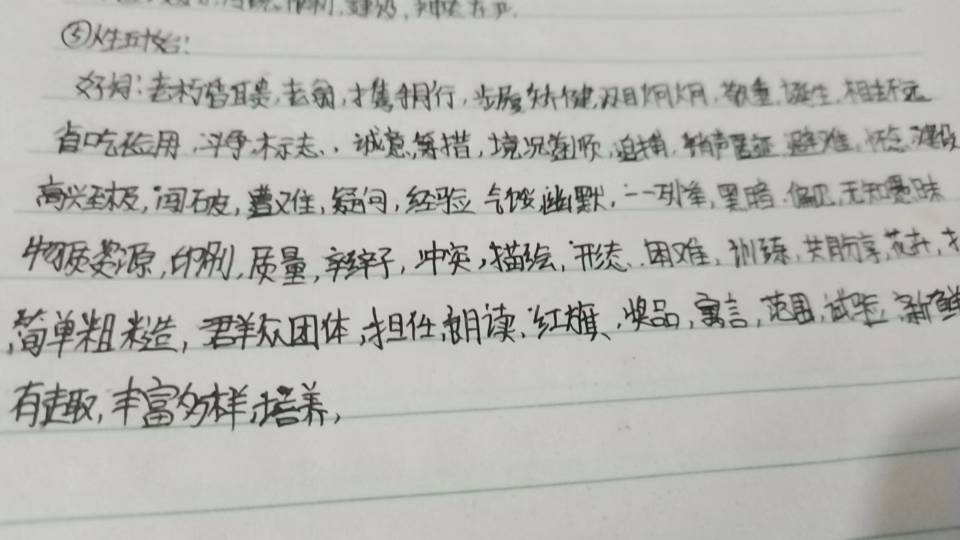 ⑤人生五大台:
好词:老朽皆可贵,去留,才集于行,步履矫健,双目炯炯,敬重,诞生,相去不远
省吃俭用,斗争,标志,诚意,筹措,境况,迫捕,销声匿迹,避难,怀念,建设
高兴至极,闯破,遭难,疑问,经验,气馁,幽默,一一列举,黑暗,偏见,无知愚昧
物质资源,印刷,质量,辫子,冲突,描绘,形态,困难,训练,共同分享,花卉,
简单粗糙造,群众团体,担任,朗读,红旗,奖品,寓言,范围,试验,新鲜
有趣,丰富多样,培养,